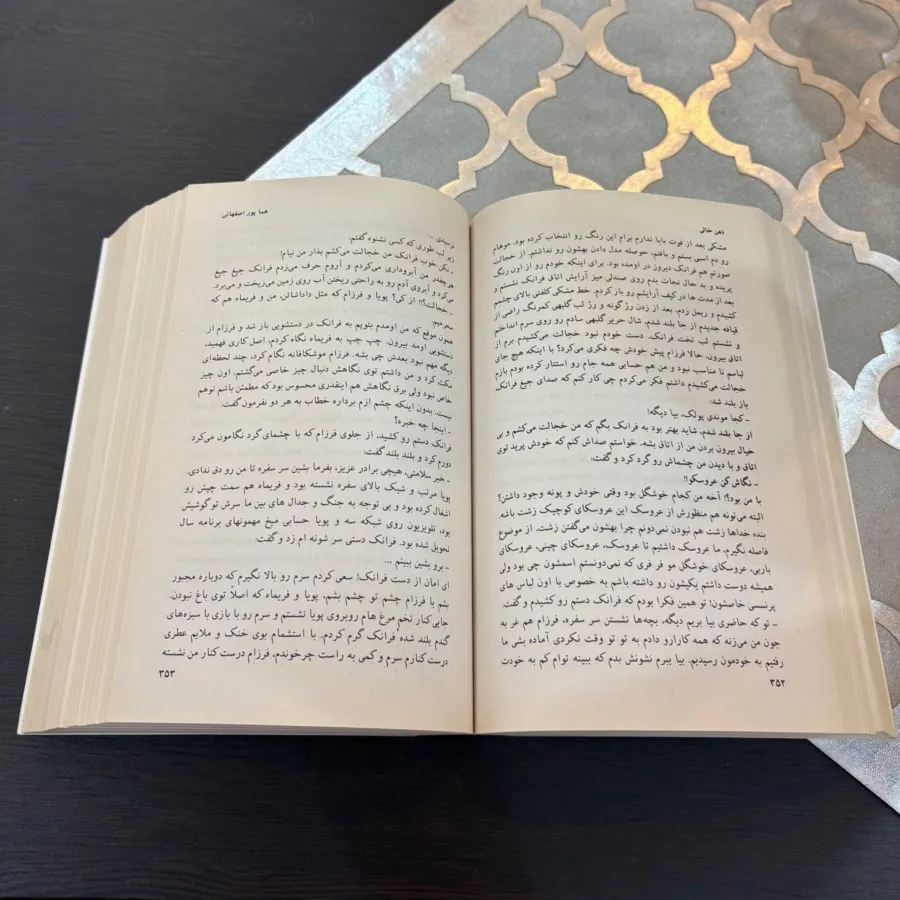 ذهن خالی
مشکی بعد از فوت بابا ندارم برام این رنگ رو انتخاب کرده بود. موهام
رو دم اسبی بستم و بافتم، حوصله مدل دادن بهشون رو نداشتم. از خجالت
صورتم هم فرانک دیروز در اومده بود. برای اینکه خودم رو از اون رنگ
پریده و بد حال نجات بدم روی صندلی میز آرایش اتاق فرانک نشستم و
بعد از مدت ها در کیف آرایشم رو باز کردم. خط مشکی کلفتی بالای چشم
کشیدم و ریمل زدم. بعد از زدن رژ گونه و رژ لب گلبهی کمرنگ راضی از
قیافه جدیدم از جا بلند شدم. شال حریر گلبهی سادم رو روی سرم انداختم
و نشستم لب تخت فرانک. دست خودم نبود خجالت می‌کشیدم برم از
اتاق بیرون، حالا فرزام پیش خودش چه فکری می‌کرد؟ با اینکه هیچ جای
لباسم نا مناسب نبود و من هم حسابی همه جام رو استتار کرده بودم بازم
خجالت می‌کشیدم داشتم فکر می‌کردم چی کار کنم که صدای جیغ فرانک
باز بلند شد:
ـ کجا موندی پولک، بیا دیگه!
از جا بلند شدم، شاید بهتر بود به فرانک بگم که من خجالت می‌کشم و بی
خیال بیرون بردن من از اتاق بشه. خواستم صداش کنم که خودش پرید توی
اتاق و با دیدن من چشماش رو گرد کرد و گفت:
ـ نگاش کن عروسکو!!
با من بود؟! آخه من کجام خوشگل بود وقتی خودش و پونه وجود داشتن؟
البته می‌تونه هم منظورش از عروسک این عروسکای کوچیک زشت باشه.
بنده خداها زشت هم نبودن نمی‌دونم چرا بهشون می‌گفتن زشت. از موضوع
فاصله نگیرم، ما عروسک داشتیم تا عروسک، عروسکای چینی، عروسکای
باربی، عروسکای خوشگل مو فر فری که نمی‌دونستم اسمشون چی بود ولی
همیشه دوست داشتم یکیشون رو داشته باشم به خصوص با اون لباس های
پرنسسی خاصشون! تو همین فکرا بودم که فرانک دستم رو کشیدم و گفت:
ـ تو که حاضری بیا بریم دیگه، بچه‌ها نشستن سر سفره، فرزام هم غر به
جون من می‌زنه که همه کارارو دادم به تو تو وقت نکردی آماده بشی ما
رفتیم به خودمون رسیدیم. بیا ببرم نشونش بدم که ببینه توام کم به خودت
۳۵۲
هما پور اصفهانی
نرسیدی ...
زیر لب طوری که کسی نشنوه گفتم:
ـ نکن خوب فرانک من خجالت می‌کشم بذار من نیام!
هرچقدر من آبروداری می‌کردم و آروم حرف می‌زدم فرانک جیغ جیغ
می‌کرد و آبروی آدم رو به راحتی ریختن آب روی زمین می‌ریخت و می‌برد.
ـ خجالت؟!! از کی؟ پویا و فرزام که مثل داداشاتن، من و فریماه هم که
محرمیم
همون موقع که من اومدم بتوپم به فرانک در دستشویی باز شد و فرزام از
دستشویی اومد بیرون. چپ چپ به فریماه نگاه کردم، اصل کاری فهمید،
دیگه مهم نبود بعدش چی بشه. فرزام موشکافانه نگام کرد، چند لحظه‌ای
مکث کرد و من داشتم توی نگاهش دنبال چیز خاصی می‌گشتم. اون چیز
خاص نبود ولی برق نگاهش هم اینقدری محسوس بود که مطمئن باشم توهم
نیست. بدون اینکه چشم ازم برداره خطاب به هر دو نفرمون گفت:
ـ اینجا چه خبره؟
فرانک دستم رو کشید، از جلوی فرزام که با چشمای گرد نگامون می‌کرد
دورم کرد و بلند بلند گفت:
ـ خبر سلامتی، هیچی برادر عزیز، بفرما بشین سر سفره تا من رو دق ندادی.
پویا مرتب و شیک بالای سفره نشسته بود و فریماه هم سمت چپش رو
اشغال کرده بود و بی توجه به جنگ و جدال های بین ما سرش تو گوشیش
بود، تلویزیون روی شبکه سه و پویا حسابی میخ مهمونهای برنامه سال
تحویل شده بود. فرانک دستی سر شونه ام زد و گفت:
ـ برو بشین ببینم ...
ای امان از دست فرانک! سعی کردم سرم رو بالا نگیرم که دوباره مجبور
بشم با فرزام چشم تو چشم بشم، پویا و فریماه که اصلاً توی باغ نبودن.
جایی کنار تخم مرغ هام روبروی پویا نشستم و سرم رو با بازی با سبزه‌های
گندم بلند شده فرانک گرم کردم. با استشمام بوی خنک و ملایم عطری
درست کنارم سرم و کمی به راست چرخوندم، فرزام درست کنار من نشسته
۳۵۳